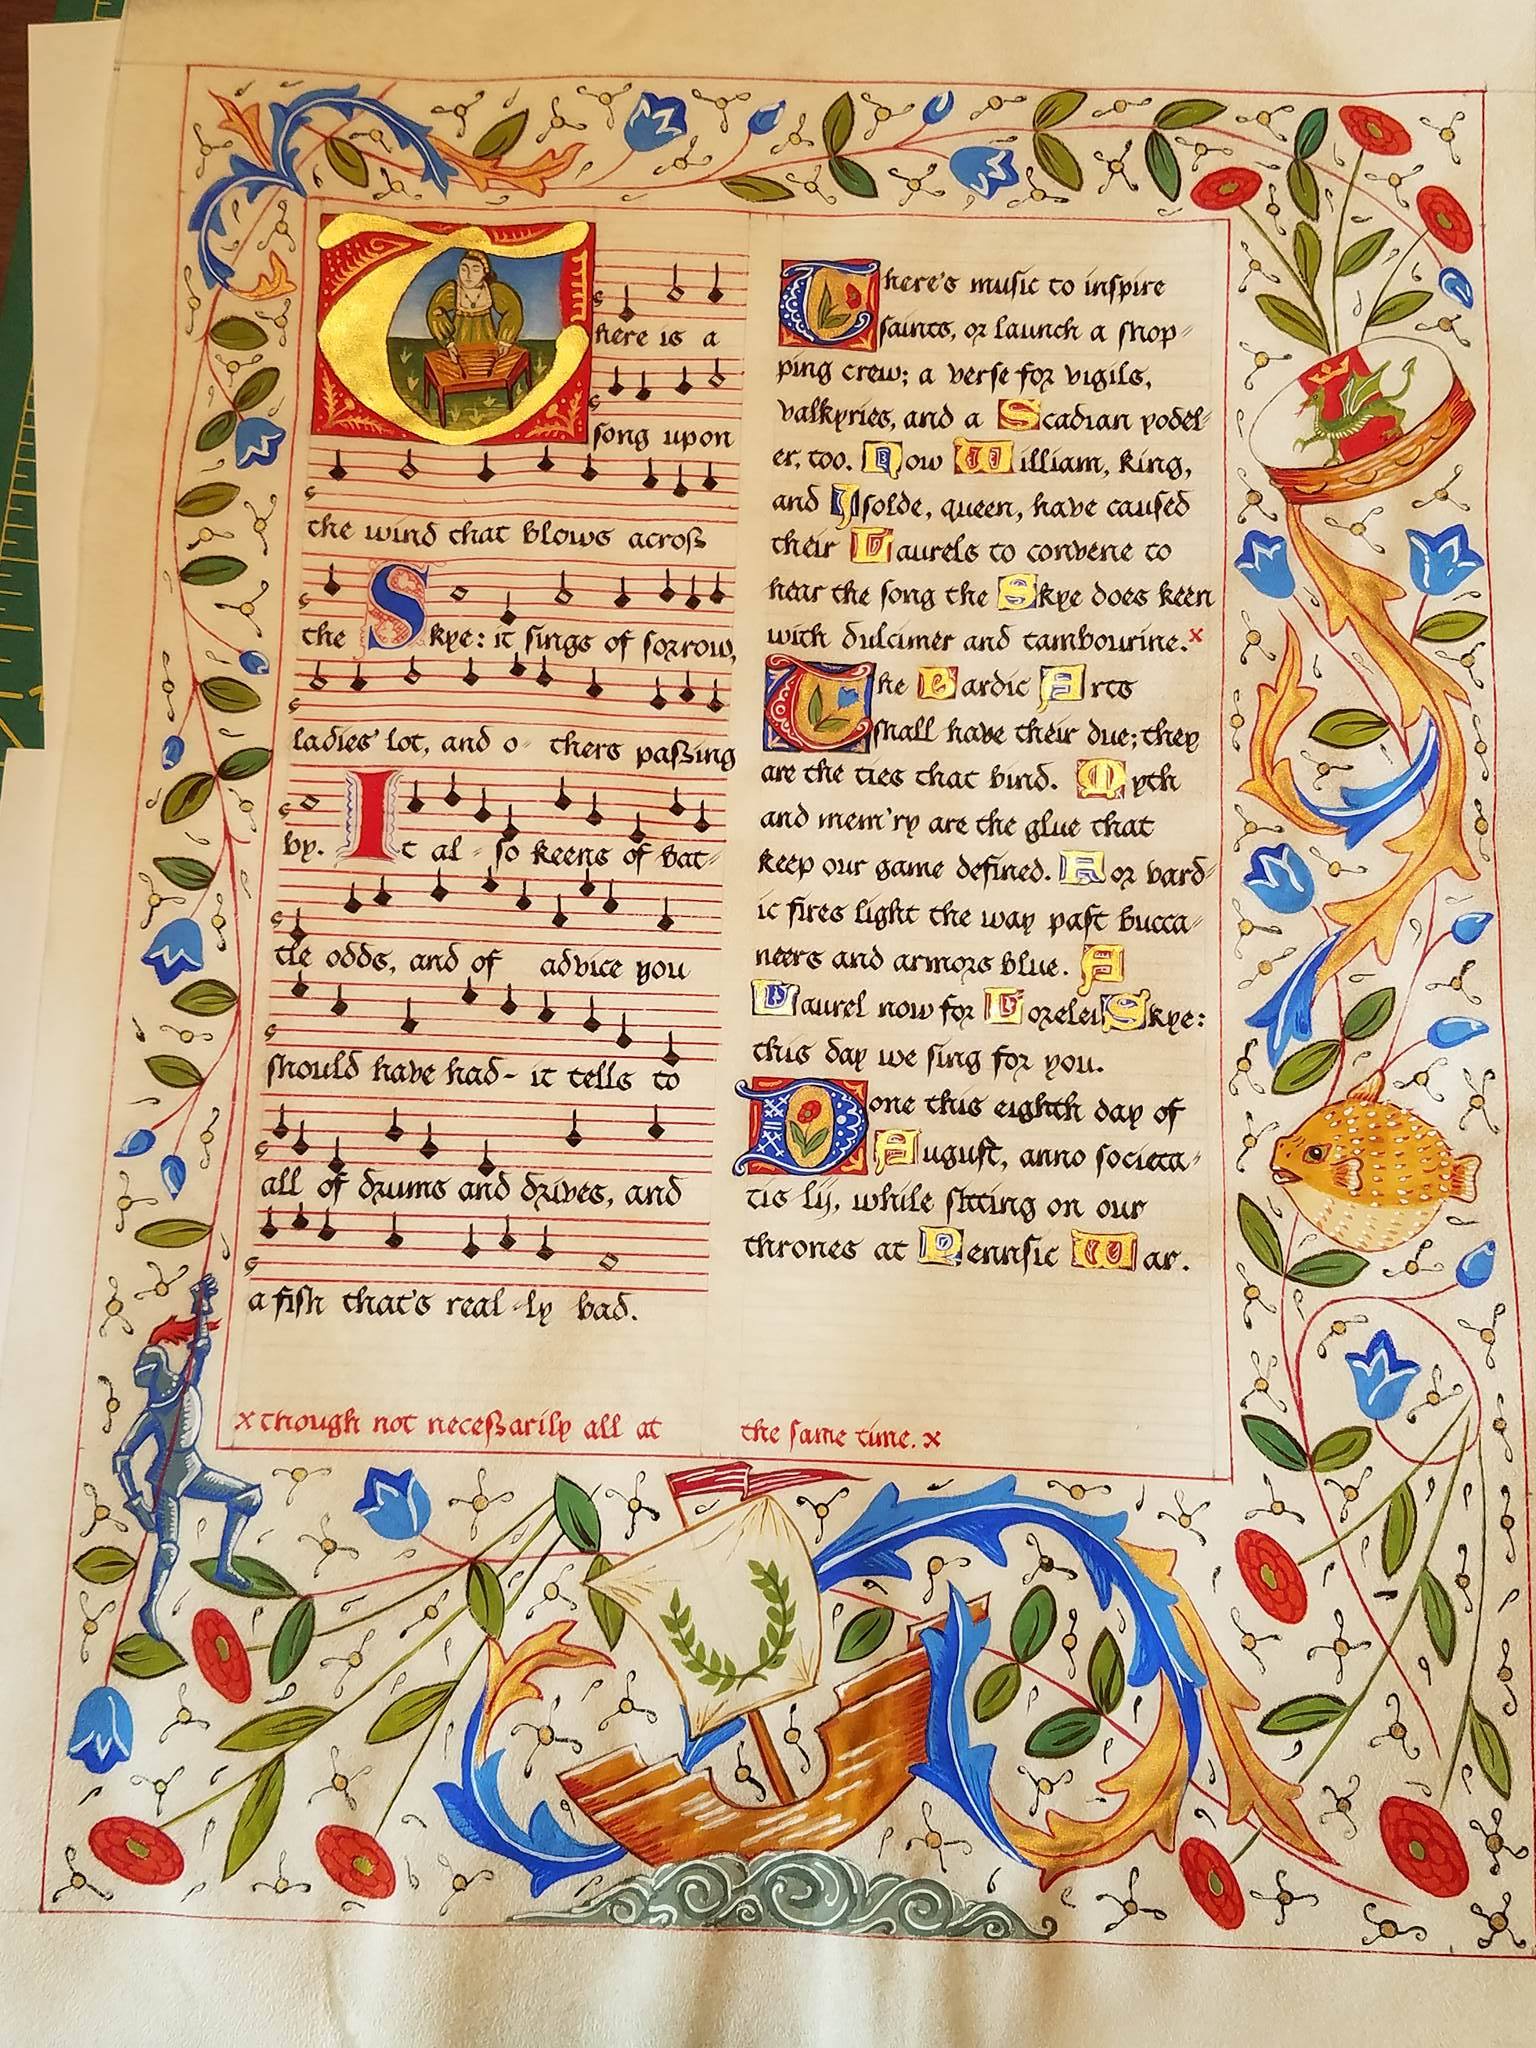 There is a
song upon
the wind that blows across
the Skye: it sings of sorrow,
ladies' lot, and o- thers passing
by. It al-so keens of bat-
tle odds, and of advice you
should have had- it tells to
all of drums and drives, and
a fish that's real-ly bad.
There's music to inspire
saints, or launch a shop-
ping crew; a verse for vigils,
valkyries, and a Scadian yodel-
er, too. Now William, king,
and Isolde, queen, have caused
their Laurels to convene to
hear the song the Skye does keen
with dulcimer and tambourine.x
The Bardic Arts
shall have their due; they
are the ties that bind. Myth
and mem'ry are the glue that
keep our game defined. For bard-
ic fires light the way past bucca-
neers and armors blue. A
Laurel now for Lorelei Skye:
this day we sing for you.
Done this eighth day of
August, anno societa-
tis lij, while sitting on our
thrones at Pennsic War.
x though not necessarily all at the same time. x